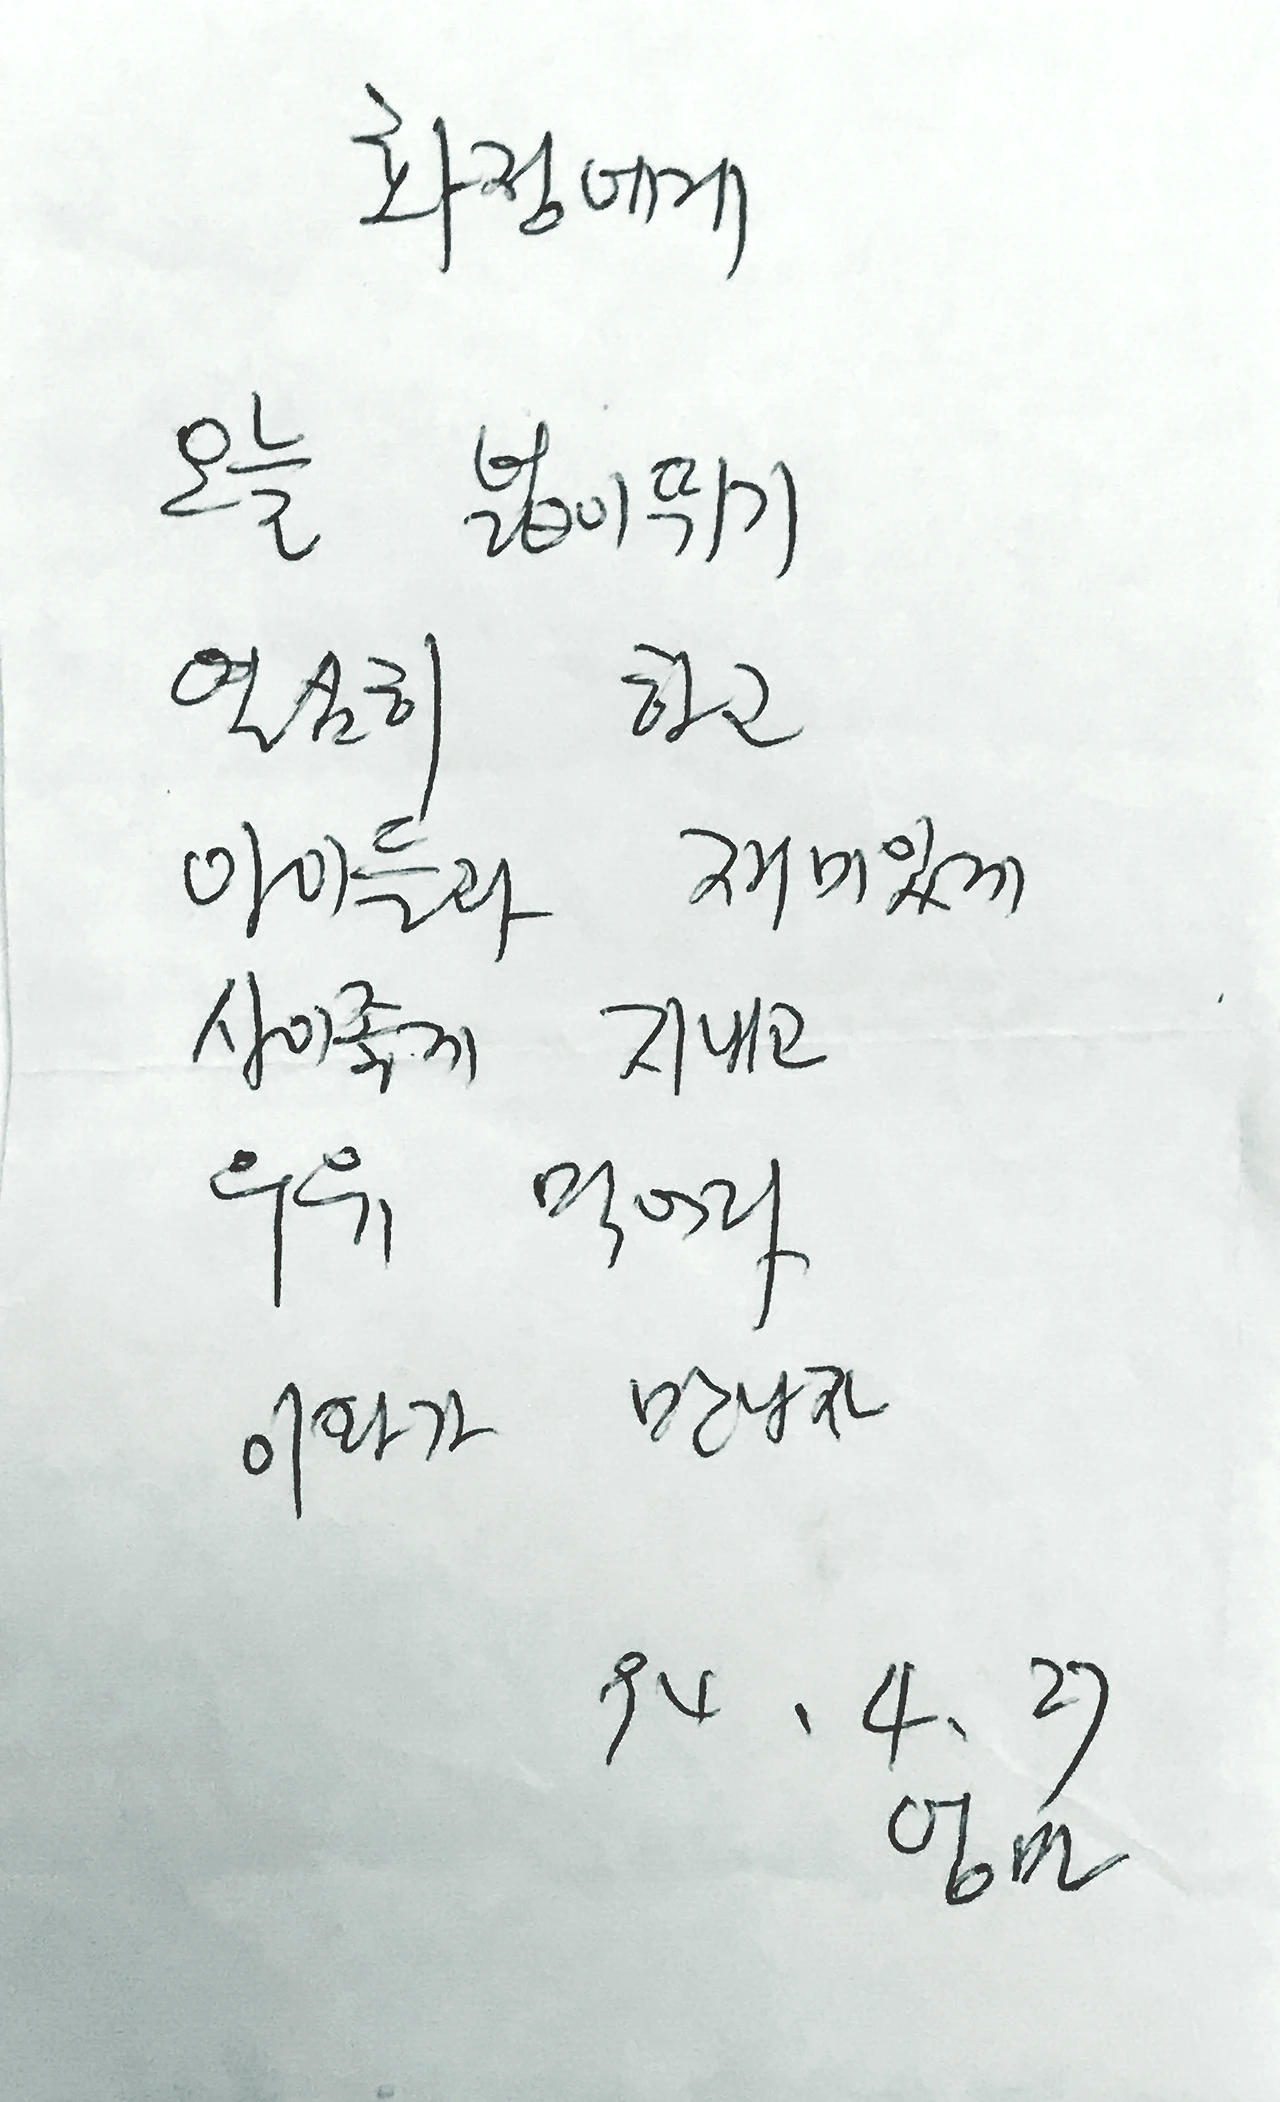 화정에게
오늘 넓이뛰기
열심히 하고
아이들과 재미있게
사이좋게 지내고
우유 먹어라
이따가 만나자
94. 4. 27